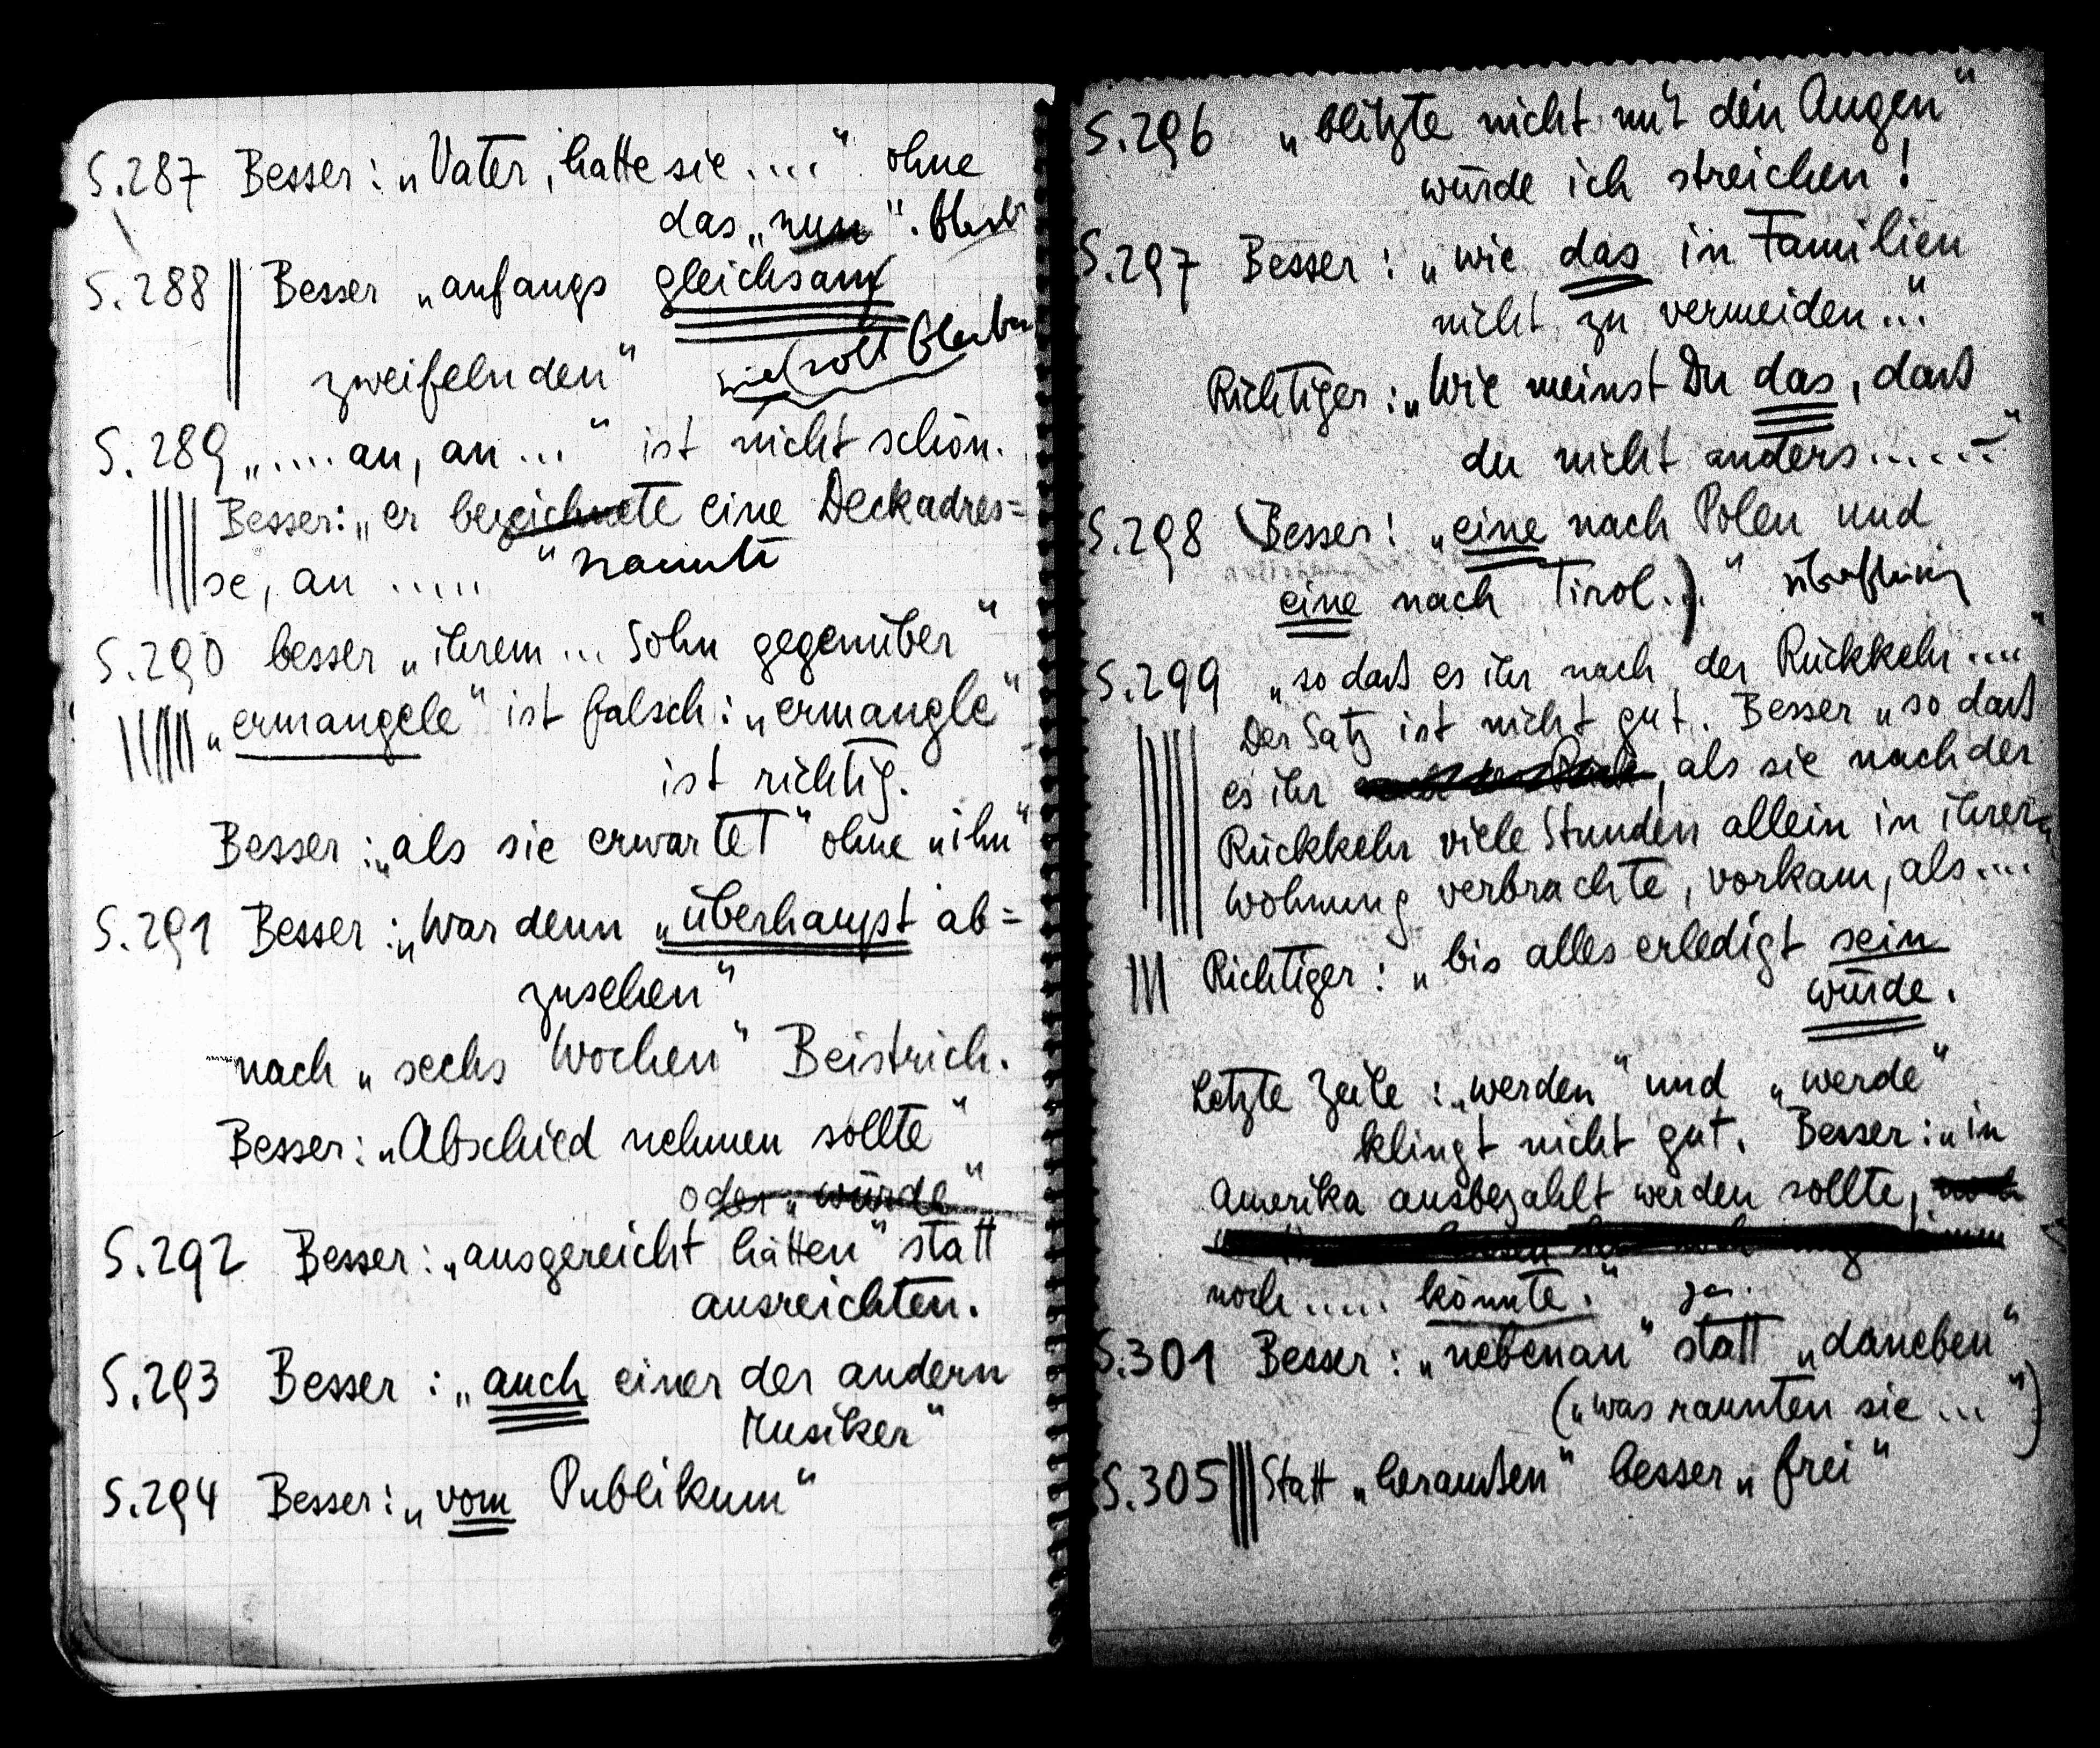 S.287 Besser: „Vater, hatte sie...." ohne
das „nun". bleibt
S.288 Besser „anfangs gleichsam
zweifelnden" soll bleiben
S.289 „.... an, an..." ist nicht schön.
Besser: „er bezeichnete eine Deckadres=
se, an ....." nannte
S.290 besser „ihrem... Sohn gegenüber"
„ermangele" ist falsch: „ermangle"
ist richtig.
Besser: „als sie erwartet" ohne „ihn"
S.291 Besser: „War denn „überhaupt ab=
zusehen"
nach „sechs Wochen" Beistrich.
Besser: „Abschied nehmen sollte"
oder „würde"
S.292 Besser: „ausgereicht hätten" statt
ausreichten.
S.293 Besser: „auch einer der andern
Musiker"
S.294 Besser: „vom Publikum"
S.296 „blitzte nicht mit den Augen"
würde ich streichen!
S.297 Besser: „wie das in Familien
nicht zu vermeiden..."
Richtiger: „Wie meinst Du das, daß
du nicht anders......"
S.298 Besser: „eine nach Polen und
eine nach Tirol.)."
S.299 „so daß es ihr nach der Rückkehr...."
Der Satz ist nicht gut. Besser „so daß
es ihr, als sie nach der
Rückkehr viele Stunden allein in ihrer
Wohnung verbrachte, vorkam, als....
Richtiger: „bis alles erledigt sein
würde.
Letzte Zeile: „werden" und „werde"
klingt nicht gut. Besser: „in
Amerika ausbezahlt werden sollte,
noch ..... könnte." ja.
S.301 Besser: „nebenan" statt „daneben"
(„was rannten sie...")
S.305 Statt „heraußen" besser „frei"